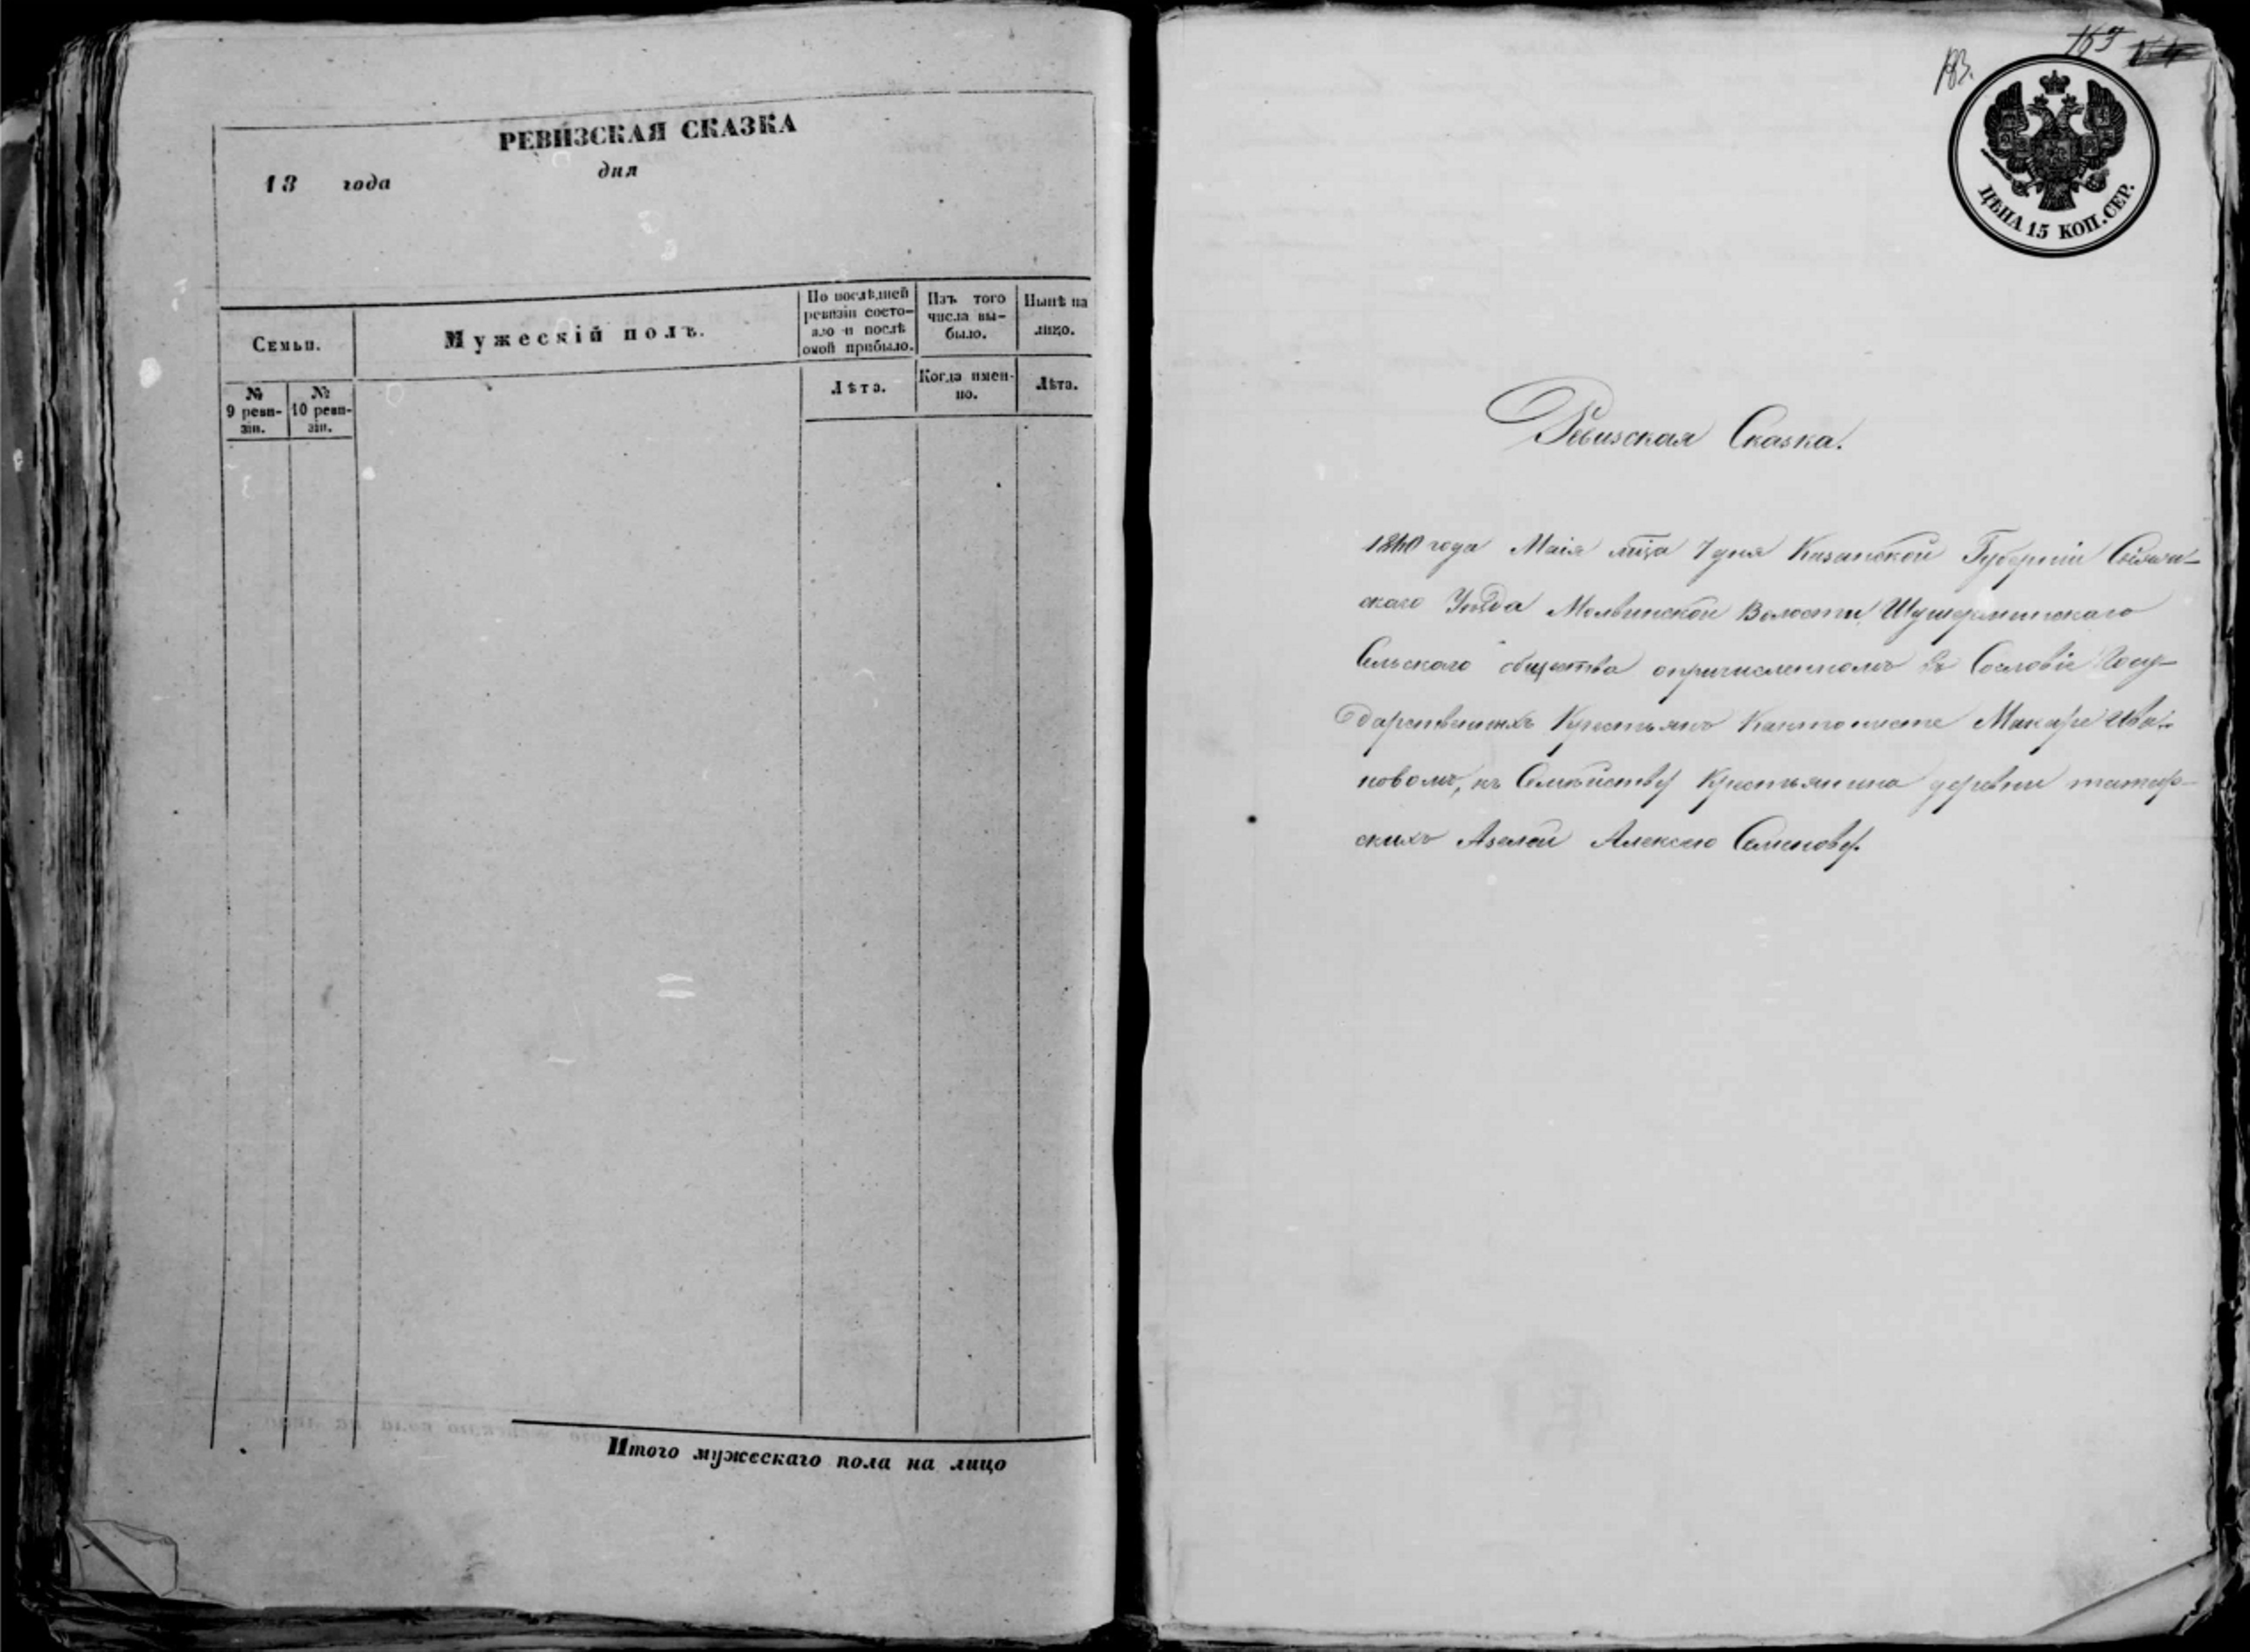 РЕВИЗСКАЯ СКАЗКА
18 года дня
Семьи.
Мужескій полъ.
По послѣдней ревизіи состо-
яло и послѣ
оной прибыло.
Изъ того
числа вы-
было.
Нынѣ на
лицо.
№
9 реви-
зіи.
№
10 реви-
зіи.
Лѣта.
Когда имен-
но.
Лѣта.
Итого мужескаго пола на лицо
183.
ЦѢНА 15 КОП. СЕР.
Ревизская Сказка.
года Маія мца 7 дня Казанской Губерніи Свіяж-
скаго Уѣзда Молвинской Волости
Сельскаго общества опричисленномъ въ Сословіе Госу-
дарственныхъ Крестьянъ Кантонисте Макаре Ива-
новомъ, къ Семѣйству Крестьянина деревни татар-
скихъ Азелей Алексею Семенову.